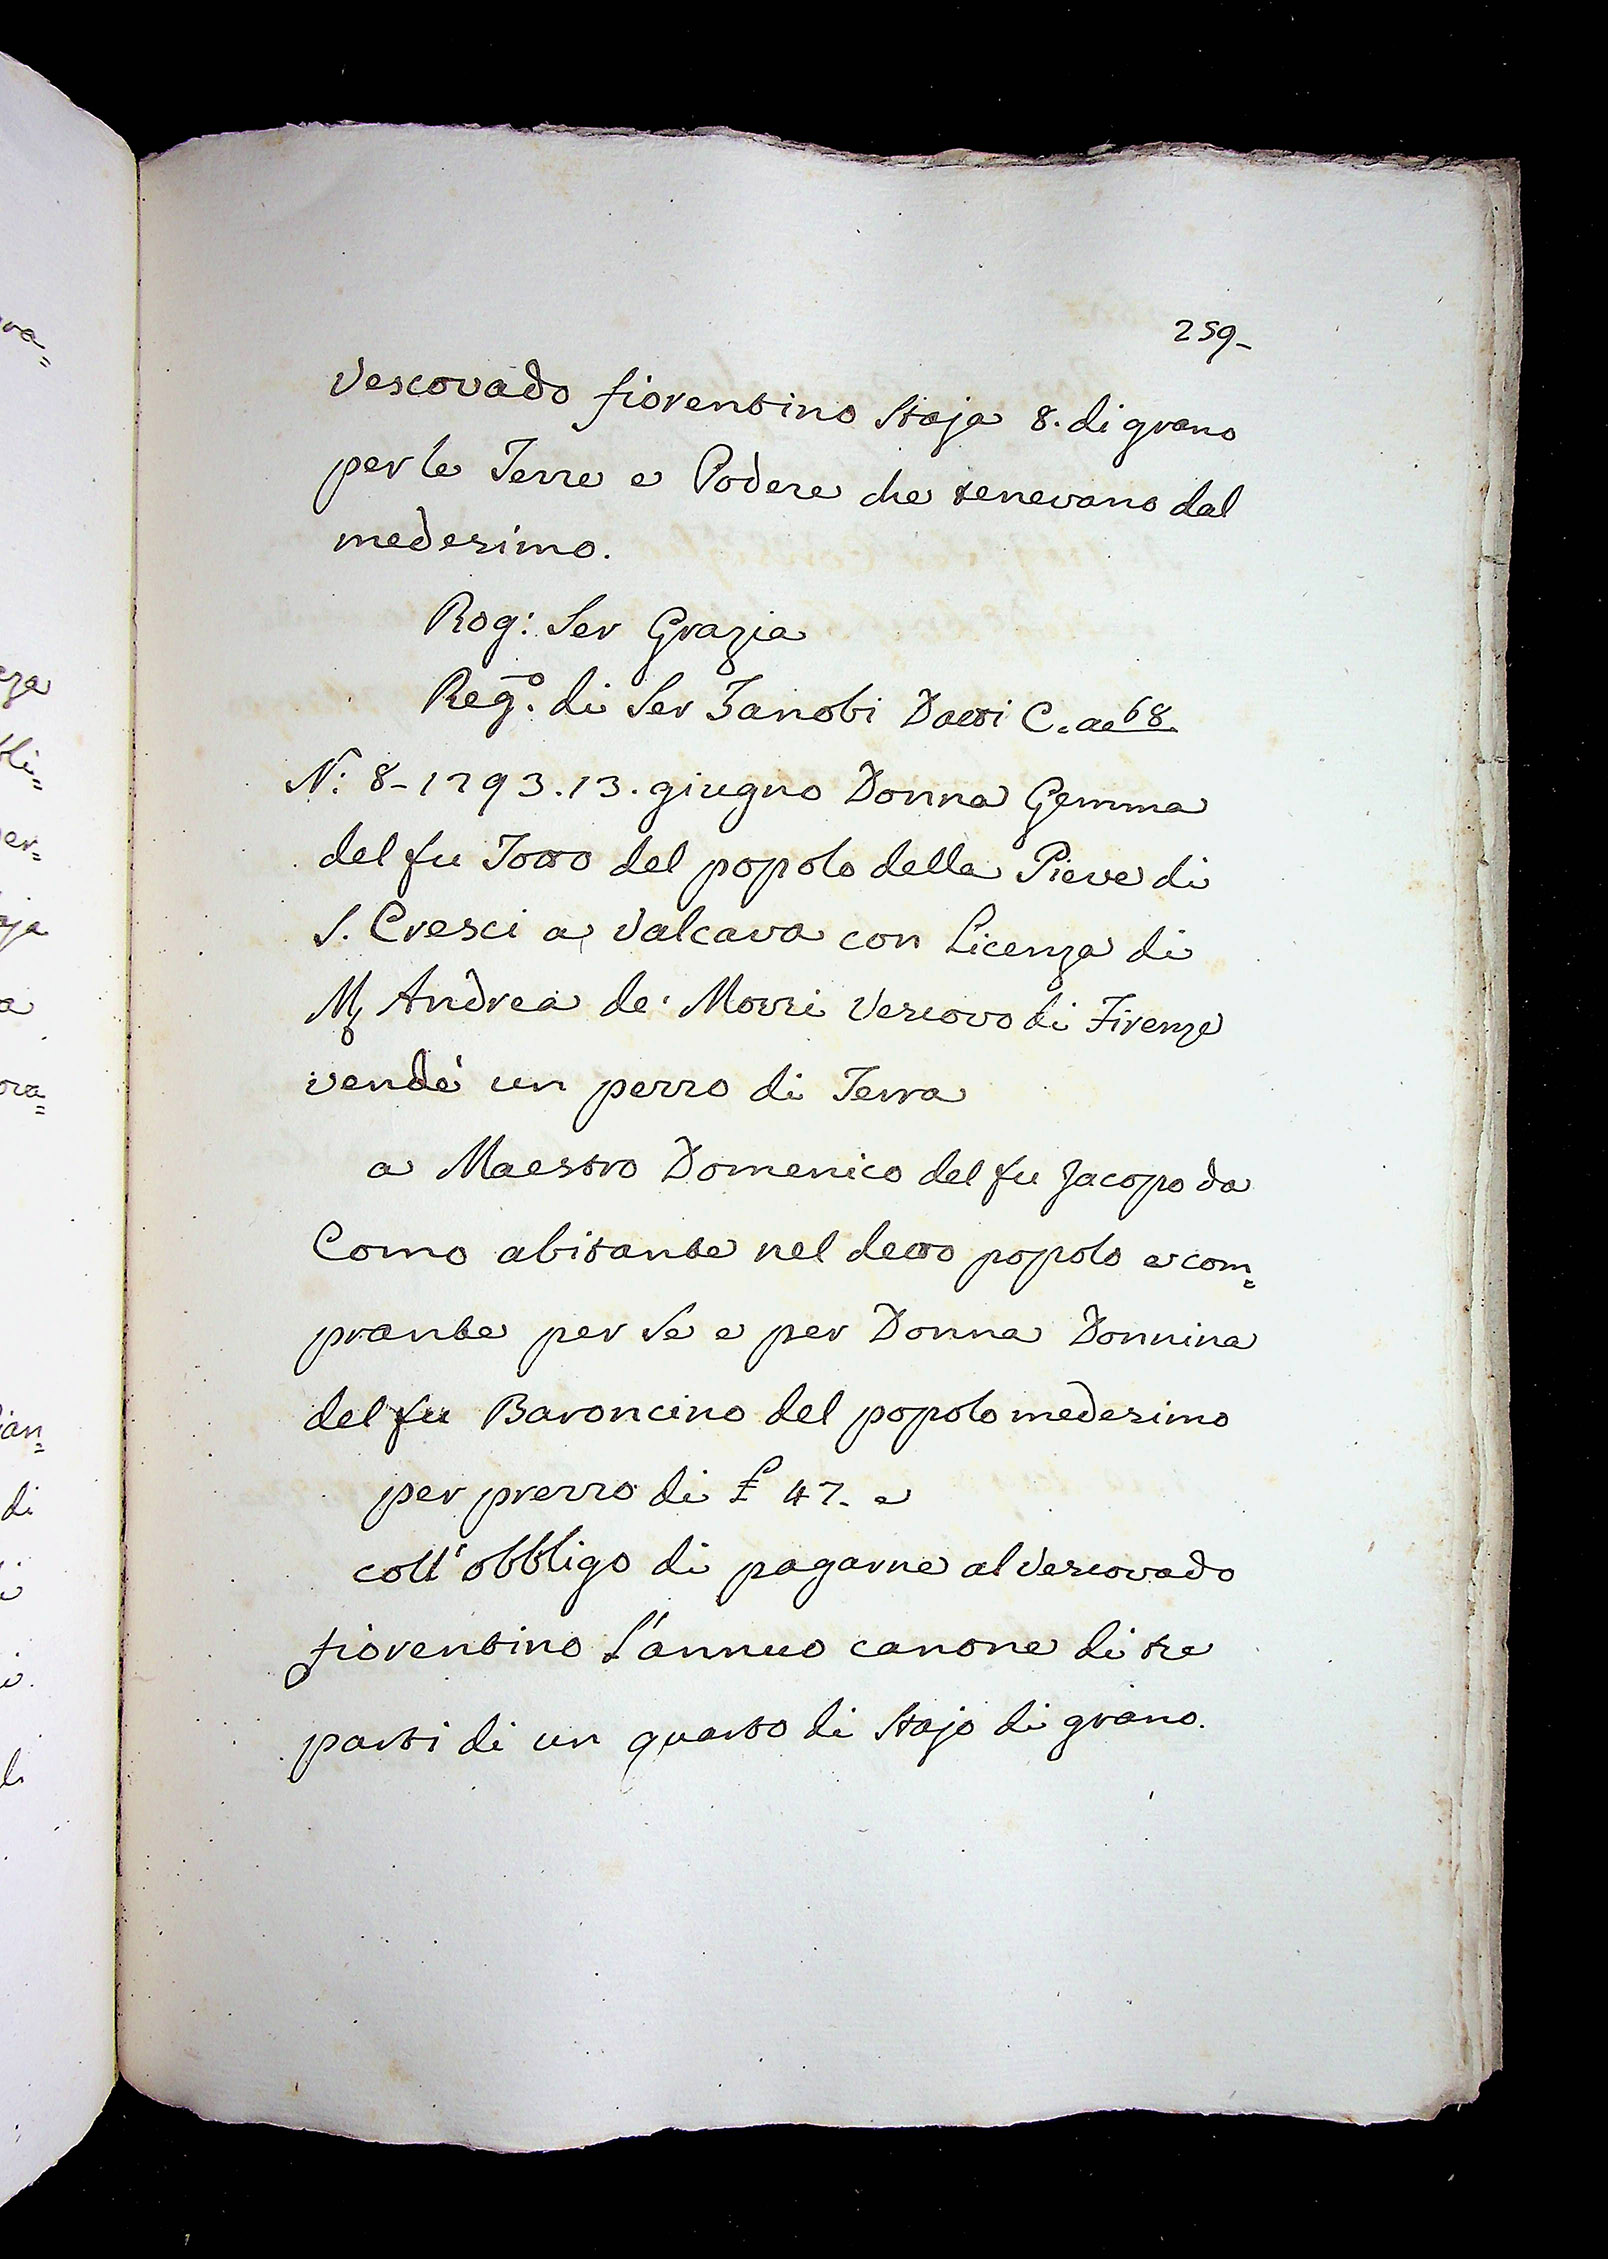 259-
Vescovado fiorentino Staja 8. di grano
per le Terre e Podere che tenevano dal
medesimo.
Rog: Ser Grazia
Reg.o di Ser Zanobi Datti C. ae 68.
N: 8- 1293. 13. giugno Donna Gemma
del fu Totto del popolo della Pieve di
S. Cresci a Valcava con Licenza di
M. Andrea de' Mozzi Vescovo di Firenze
vendè un pezzo di Terra
a Maestro Domenico del fu Jacopo da
Como abitante nel detto popolo e com=
prante per se e per Donna Donnina
del fu Baroncino del popolo medesimo
per prezzo di £ 47. e
coll' obbligo di pagarne al Vescovado
fiorentino l'annuo canone di tre
parti di un quarto di Stajo di grano.